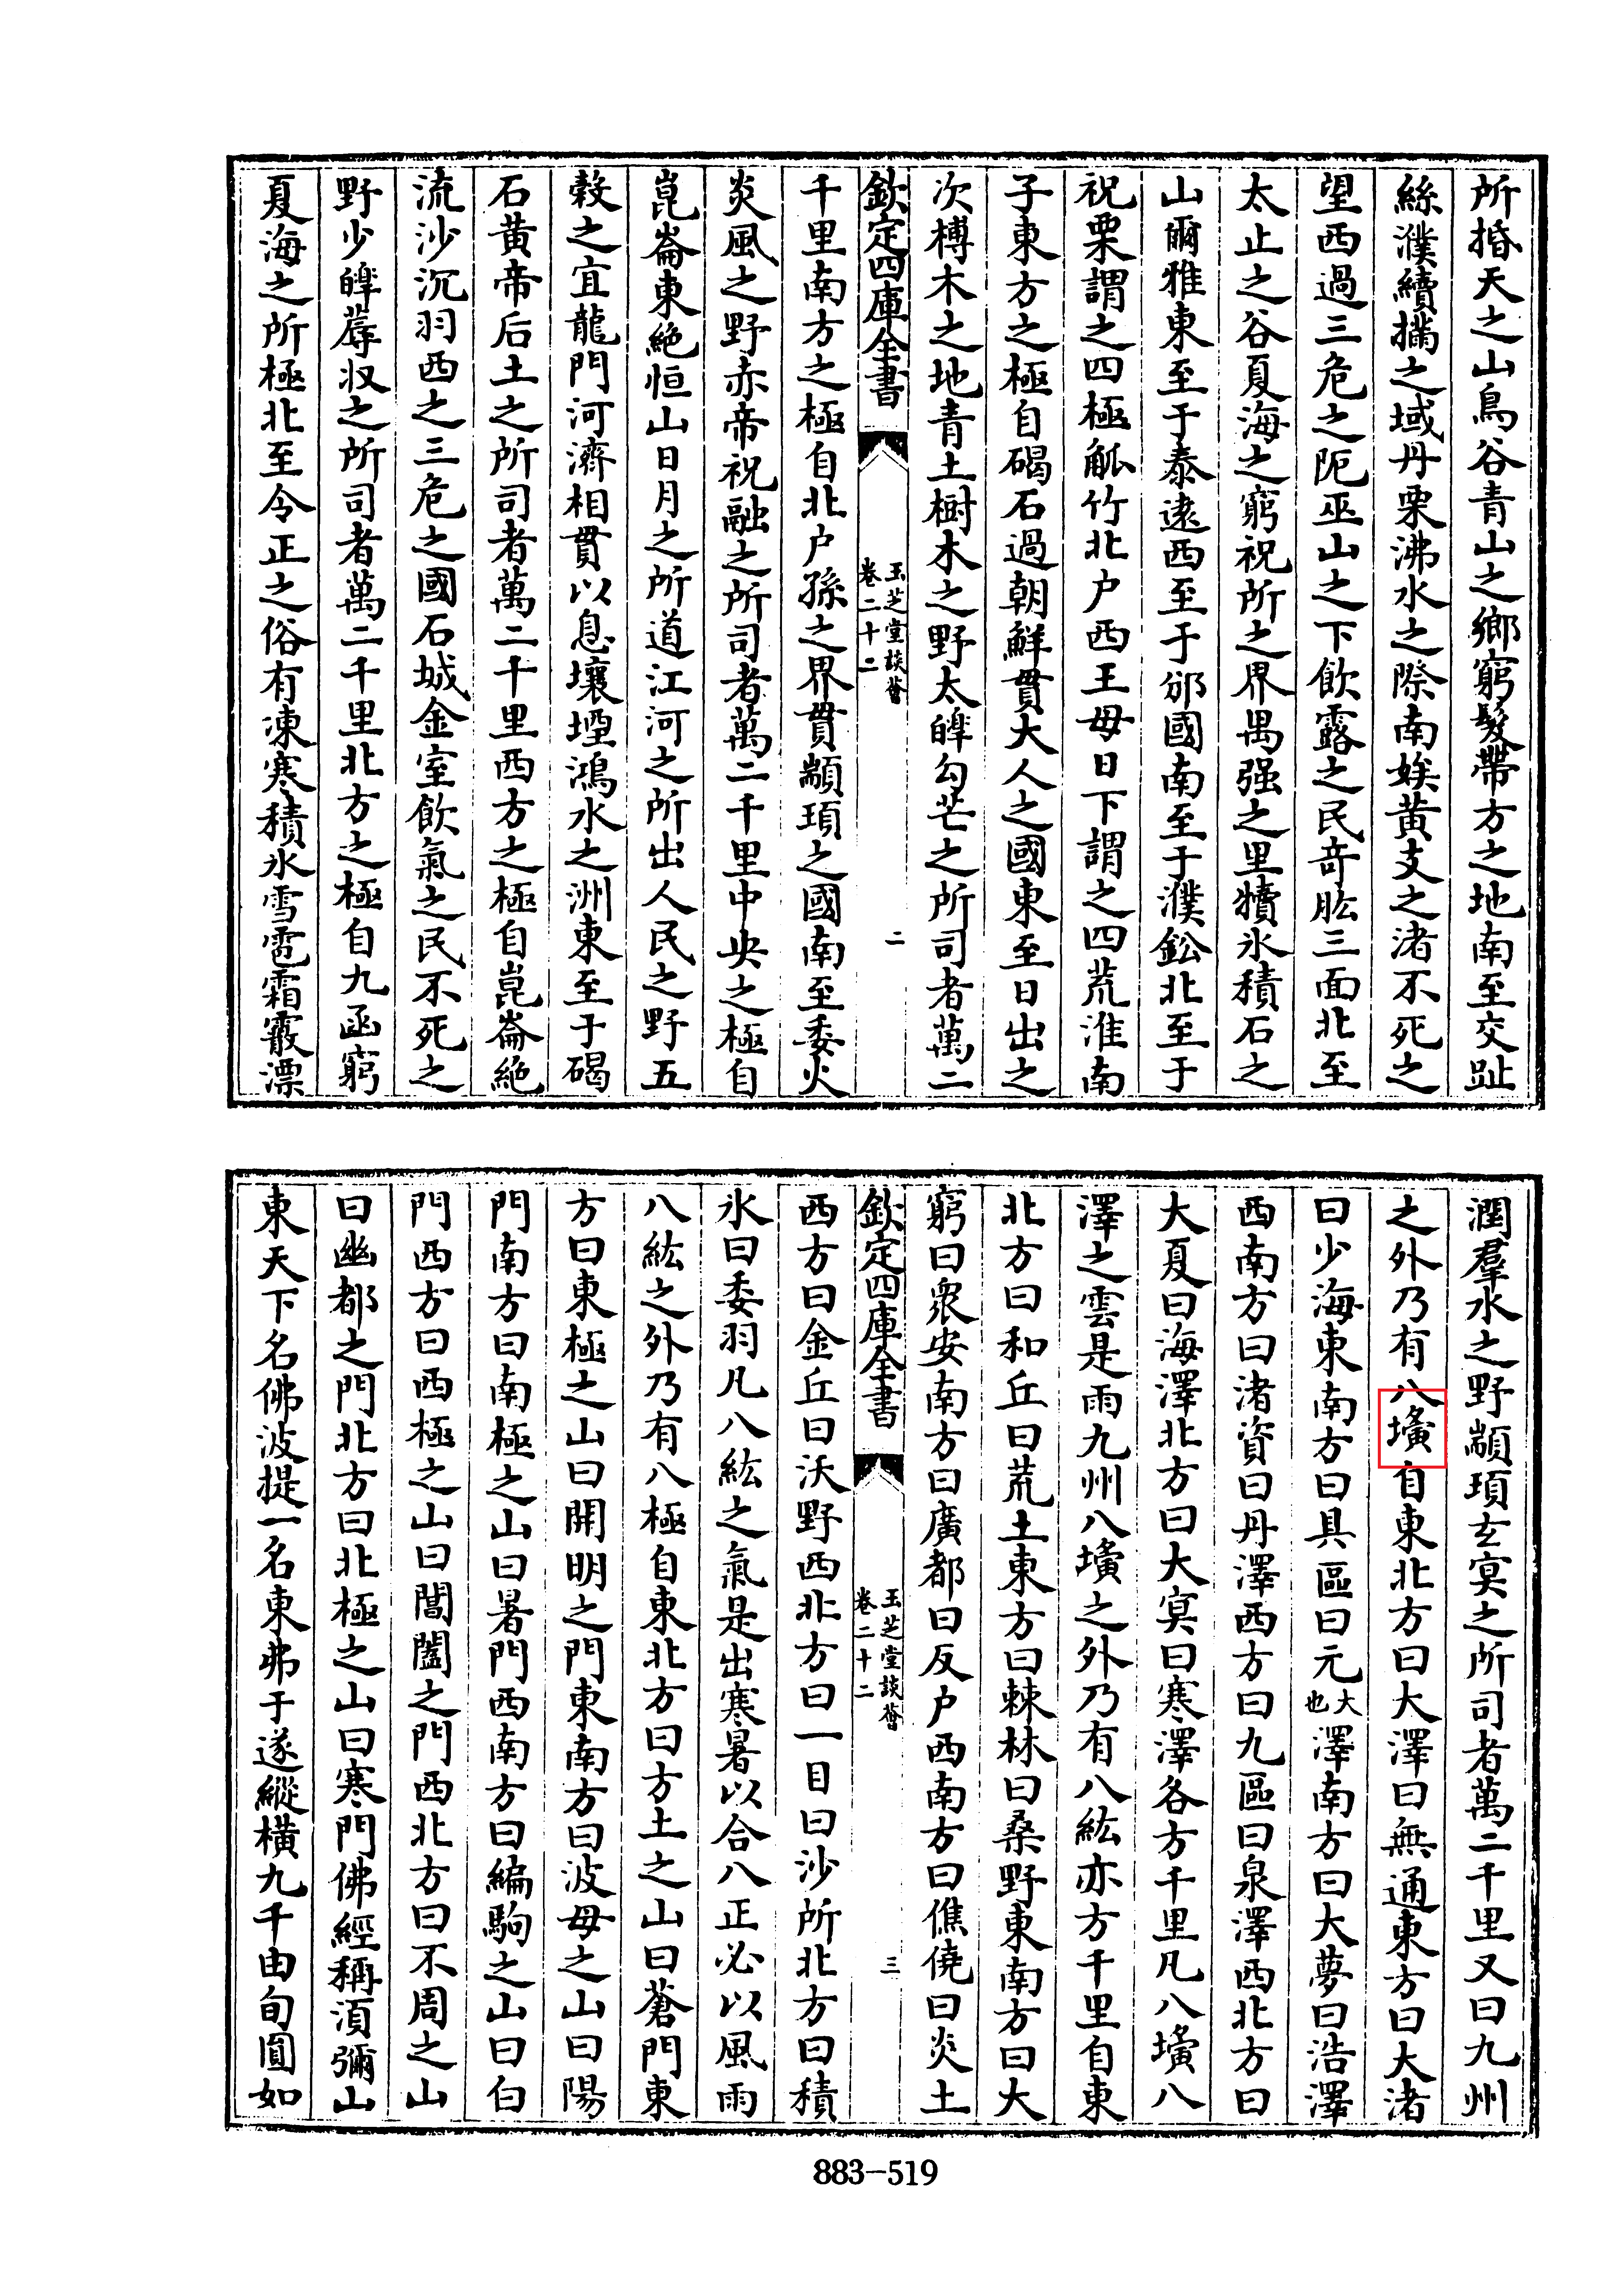 所揗天之山鳥谷青山之鄉窮髮帶方之地南至交趾
絲濮續樠之域丹栗沸水之際南娭黃支之渚不死之
望西過三危之阨巫山之下飲露之民竒肱三面北至
太止之谷夏海之窮祝所之界禺强之里犢氷積石之
山爾雅東至于泰逺西至于邠國南至于濮鈆北至于
祝栗謂之四極觚竹北户西王母日下謂之四荒淮南
子東方之極自碣石過朝鮮貫大人之國東至日出之
次榑木之地青土樹木之野太皥勾芒之所司者萬二
欽定四庫全書
玉芝堂談薈
卷二十二
二
千里南方之極自北户孫之界貫顓頊之國南至委火
炎風之野赤帝祝融之所司者萬二千里中央之極自
崑崙東絶恒山日月之所道江河之所出人民之野五
穀之宜龍門河濟相貫以息壤堙鴻水之洲東至于碣
石黄帝后土之所司者萬二千里西方之極自崑崙絶
流沙沉羽西之三危之國石城金室飲氣之民不死之
野少皥蓐収之所司者萬二千里北方之極自九函窮
夏海之所極北至令正之俗有凍寒積氷雪雹霜霰漂
潤羣水之野顓頊玄冥之所司者萬二千里又曰九州
之外乃有八壙自東北方曰大澤曰無通東方曰大渚
曰少海東南方曰具區曰元大也澤南方曰大夢曰浩澤
西南方曰渚資曰丹澤西方曰九區曰泉澤西北方曰
大夏曰海澤北方曰大冥曰寒澤各方千里凡八壙八
澤之雲是雨九州八壙之外乃有八紘亦方千里自東
北方曰和丘曰荒土東方曰棘林曰桑野東南方曰大
窮曰衆安南方曰廣都曰反户西南方曰僬僥曰炎土
欽定四庫全書
玉芝堂談薈
卷二十二
三
西方曰金丘曰沃野西北方曰一目曰沙所北方曰積
氷曰委羽凡八紘之氣是出寒暑以合八正必以風雨
八紘之外乃有八極自東北方曰方土之山曰蒼門東
方曰東極之山曰開明之門東南方曰波母之山曰陽
門南方曰南極之山曰暑門西南方曰編駒之山曰白
門西方曰西極之山曰閶闔之門西北方曰不周之山
曰幽都之門北方曰北極之山曰寒門佛經稱湏彌山
東天下名佛波提一名東弗于逐縱橫九千由旬圓如
883-519